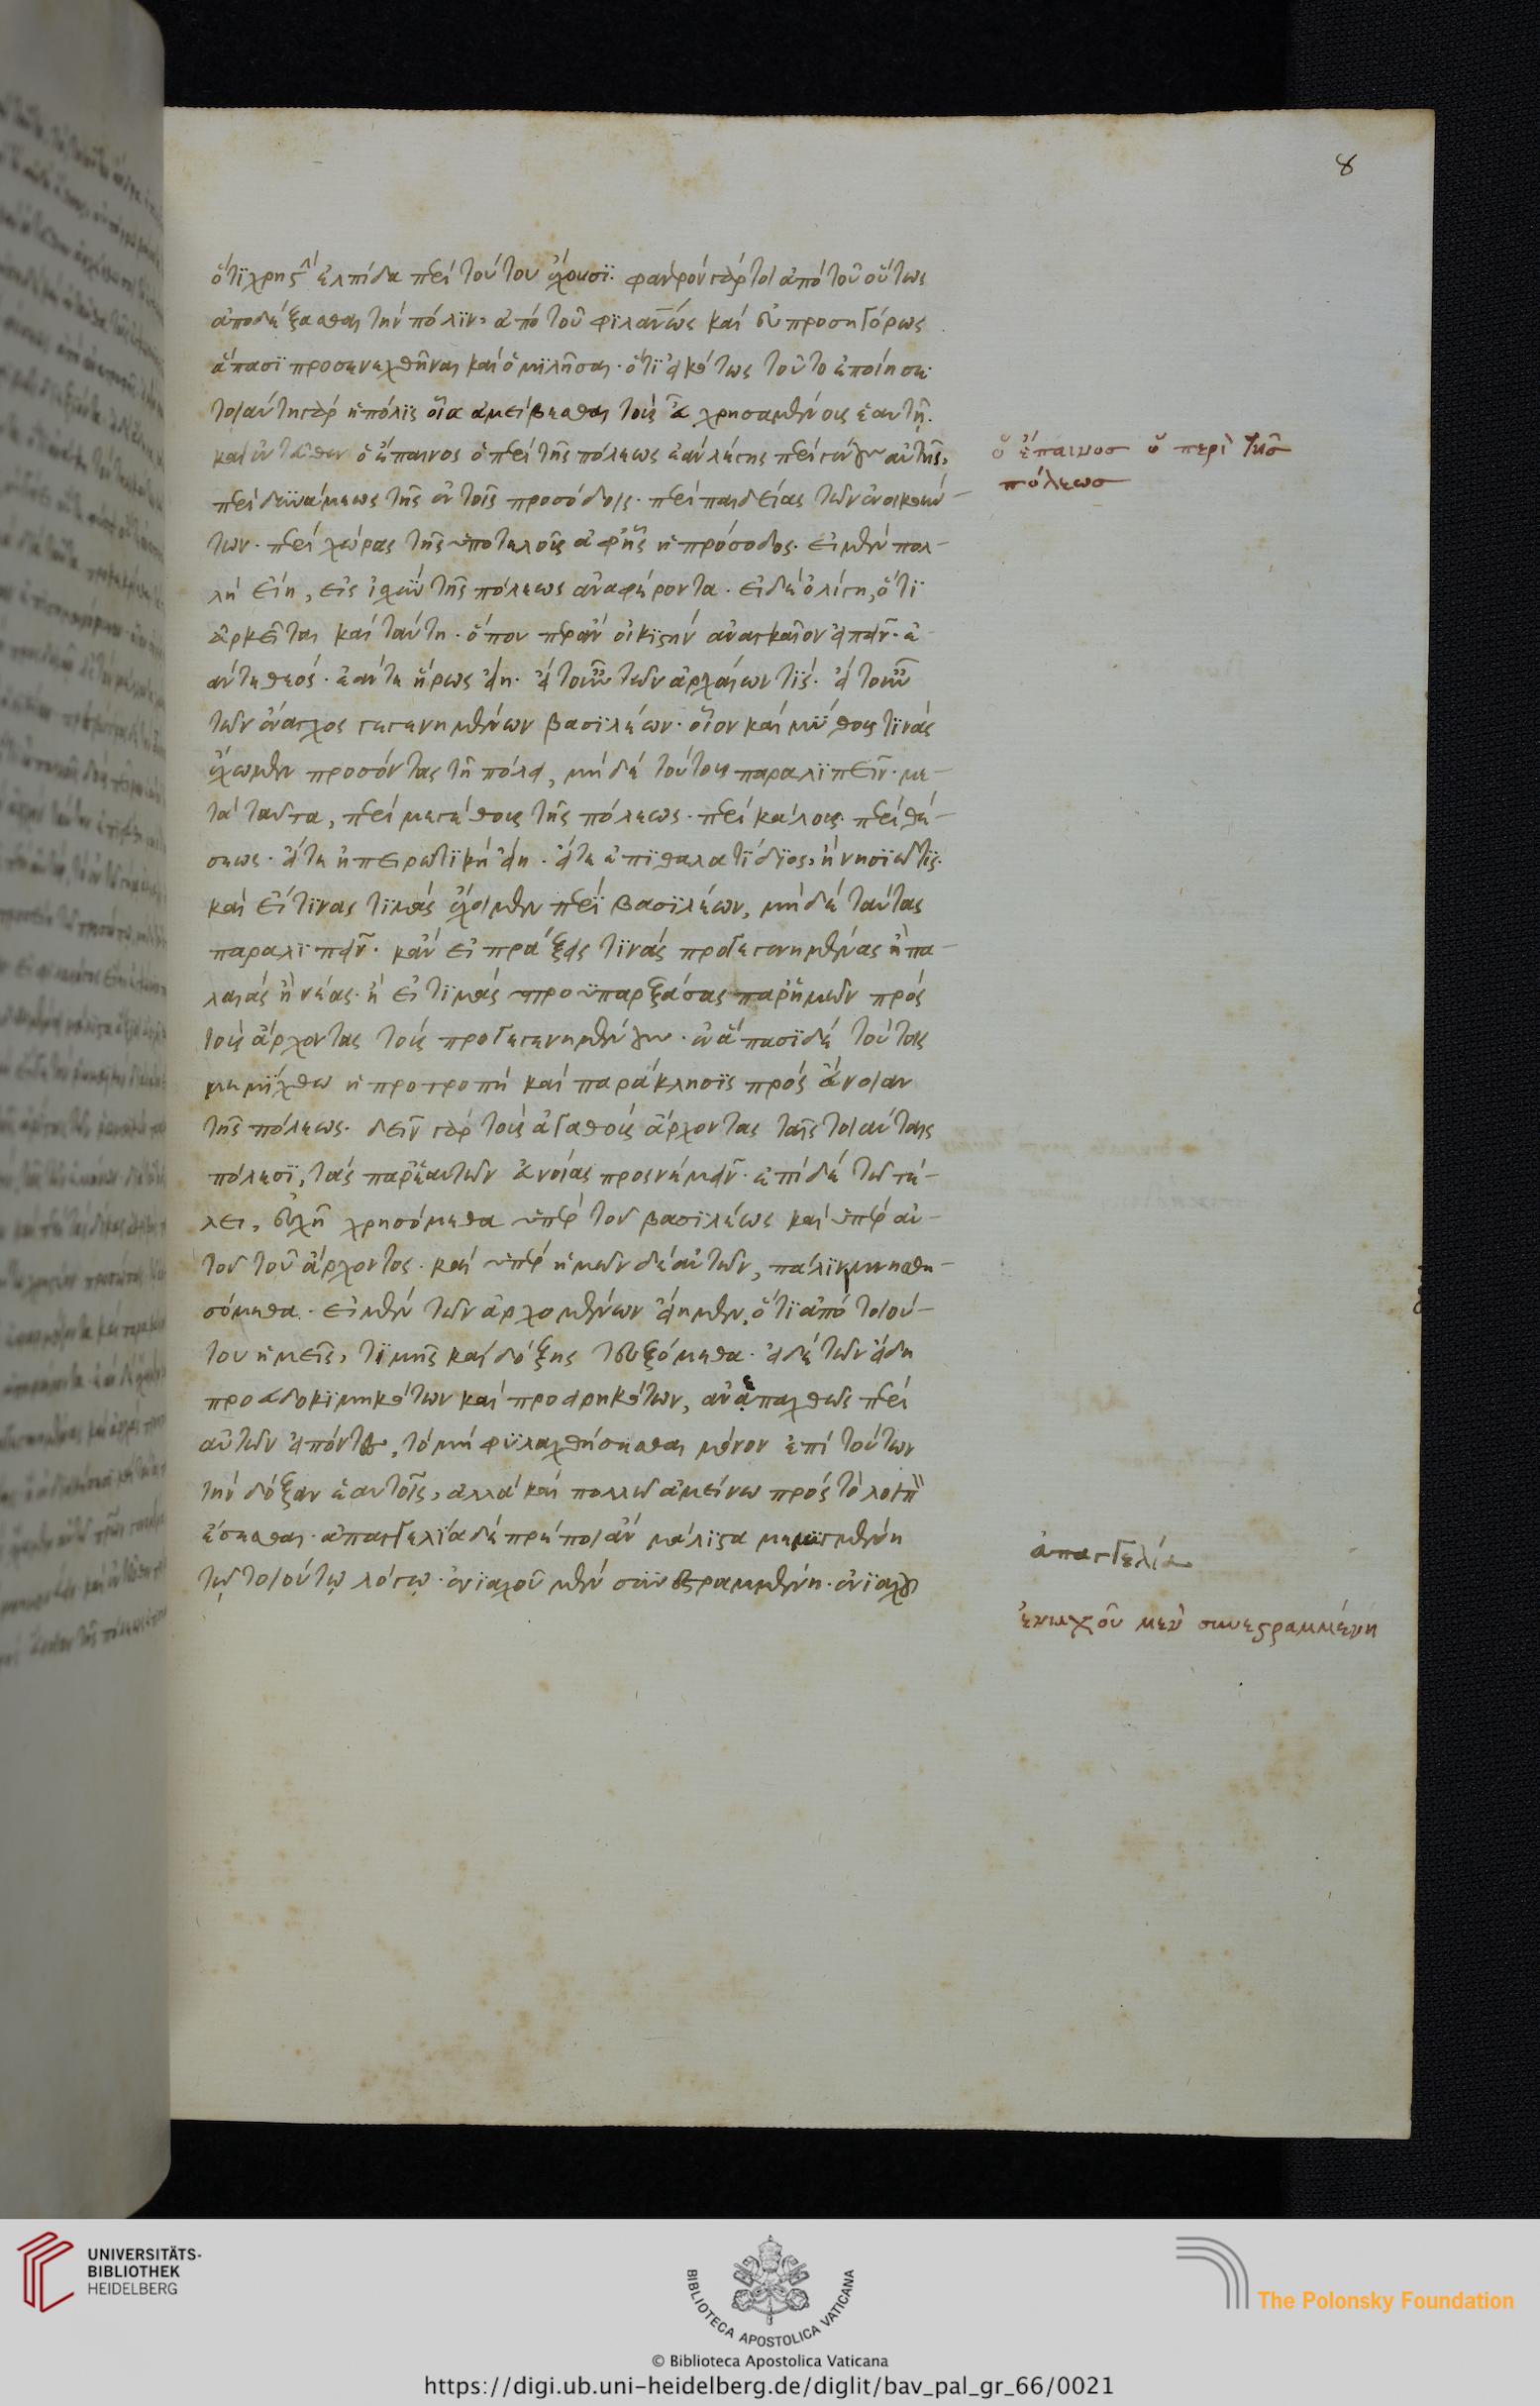 8
ὅτι χρηστὴν ἐλπίδα περὶ τούτου ἔχουσι. φανερὸν γάρ τοι ἀπὸ τοῦ οὕτως
ἀποδέξασθαι τὴν πόλιν, ἀπὸ τοῦ φιλανως καὶ εὐπροσηγόρως
ἅπασι προσενεχθῆναι καὶ ὁμιλῆσαι. ὅτι εἰκότως τοῦτο ἐποίησε.
τοιαύτη γὰρ ἡ πόλις οἵα ἀμείβεσθαι τοὺς εὖ χρησαμένους ἑαυτῇ.
καὶ ἐνταῦθα ὁ ἔπαινος ὁ περὶ τῆς πόλεως ἐὰν λέγῃς περὶ γένους αὐτῆς,
περὶ δυνάμεως τῆς ἐν τοῖς προσόδοις. περὶ παιδείας τῶν ἐνοικούν-
των. περὶ χώρας τῆς ὑποτελοῦς ἀφ' ἧς ἡ πρόσοδος. εἰ μὲν πολ-
λὴ εἴη, εἰς ἰσχὺν τῆς πόλεως ἀναφέροντα. εἰ δὲ ὀλίγη, ὅτι
ἀρκεῖται καὶ ταύτῃ. ὅπου περ ἂν οἰκιστὴν ἀναγκαῖον εἰπεῖν. ἐ-
άν τε θεός. ἐάν τε ἥρως εἴη. εἴ τουν τῶν ἀρχαίων τίς. εἴ τουν
τῶν ἔναγχος γεγενημένων βασιλέων. οἷον καὶ μύθους τινὰς
ἔχωμεν προσόντας τῇ πόλει, μὴ δὲ τούτους παραλιπεῖν. με-
τὰ ταῦτα, περὶ μεγέθους τῆς πόλεως. περὶ κάλους περὶ θέ-
σεως. εἴτε ἠπειρωτικὴ εἴη. εἴτε ἐπιθαλατίδιος, ἢ νησιῶτις.
καὶ εἴ τινας τιμὰς ἔχοιμεν περὶ βασιλέων, μὴ δὲ ταύτας
παραλιπεῖν. κἂν εἰ πράξεις τινὰς προγεγενημένας ἢ πα-
λαιὰς ἢ νέας. ἢ εἰ τιμὰς προϋπαρξάσας παρ' ἡμῶν πρὸς
τοὺς ἄρχοντας τοὺς προγεγενημένους. ἐν ἅπασι δὲ τούτοις
μεμίχθω ἡ προτροπὴ καὶ παράκλησις πρὸς εὔνοιαν
τῆς πόλεως. δεῖν γὰρ τοὺς ἀγαθοὺς ἄρχοντας ταῖς τοιαύταις
πόλεσι, τὰς παρ' ἑαυτῶν εὐνοίας προσνέμειν. ἐπὶ δὲ τῶ τέ-
λει, εὐχῇ χρησόμεθα ὑπὲρ τοῦ βασιλέως καὶ ὑπὲρ αὐ-
τοῦ τοῦ ἄρχοντος. καὶ ὑπὲρ ἡμῶν δὲ αὐτῶν, πάλιν μνησθη-
σόμεθα. εἰ μὲν τῶν ἀρχομένων εἴημεν, ὅτι ἀπὸ τοιού-
του ἡμεῖς, τιμῆς καὶ δόξης τευξόμεθα. εἰ δὲ τῶν ἤδη
προευδοκιμηκότων καὶ προειρηκότων, ἀνεπαχθῶς περὶ
αὐτῶν εἰπόντες, τὸ μὴ φυλαχθήσεσθαι μόνον ἐπὶ τούτων
τὴν δόξαν ἑαυτοῖς, ἀλλὰ καὶ πολλῶ ἀμείνω πρὸς τὸ λοιπὸν
ἔσεσθαι. ἀπαγγελία δὲ πρέποι ἂν μάλιστα μεμιγμένη
τῷ τοιούτῳ λόγῳ. ἐνιαχοῦ μὲν συνεστραμμένη. ἐνιαχοῦ
ὁ ἔπαινος ὁ περὶ τῆς
πόλεως
ἀπαγγελία
ἐνιαχοῦ μὲν συνεστραμμένη
UNIVERSITÄTS-
BIBLIOTHEK
HEIDELBERG
BIBLIOTECA APOSTOLICA VATICANA
© Biblioteca Apostolica Vaticana
The Polonsky Foundation
https://digi.ub.uni-heidelberg.de/diglit/bav_pal_gr_66/0021